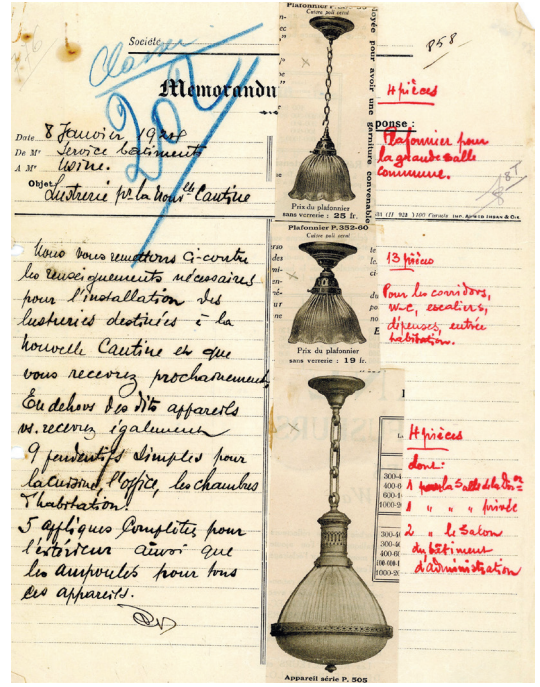 Société
858
Classer
202
Memorandu
Date 8 Janvier 1928
De Mr Service batiments
A Mr Usine.
Objet Lustrerie pr la Nouvlle Cantine
Nous vous remettons Ci-contre
les renseignements nécessaires
pour l'installation des
lustreries destinées à la
nouvelle Cantine et que
vous recevrez prochainement
En dehors des dits appareils
vs. recevrez également
9 pendentifs simples pour
la cuisine, l'office, les chambres
d'habitation.
5 appliques Complètes pour
l'extérieur ainsi que
les ampoules pour tous
ces appareils.
Cuivre poli verni
ployée pour avoir une garniture convenable
Prix du plafonnier
sans verrerie : 25 fr.
Plafonnier P.352-60
Cuivre poli verni
Prix du plafonnier
sans verrerie : 19 fr.
Appareil série P. 505
ponse :
4 pièces
Plafonnier pour
la grande salle
commune.
IMP. AHMED IHSAN & Cie
13 pièces
Pour les corridors,
w-c, escaliers,
dépenses, entrée
habitation.
4 pièces
dont:
1 pour la Salle
1 " " " privée
2 " le Salon
du bâtiment
d'administration